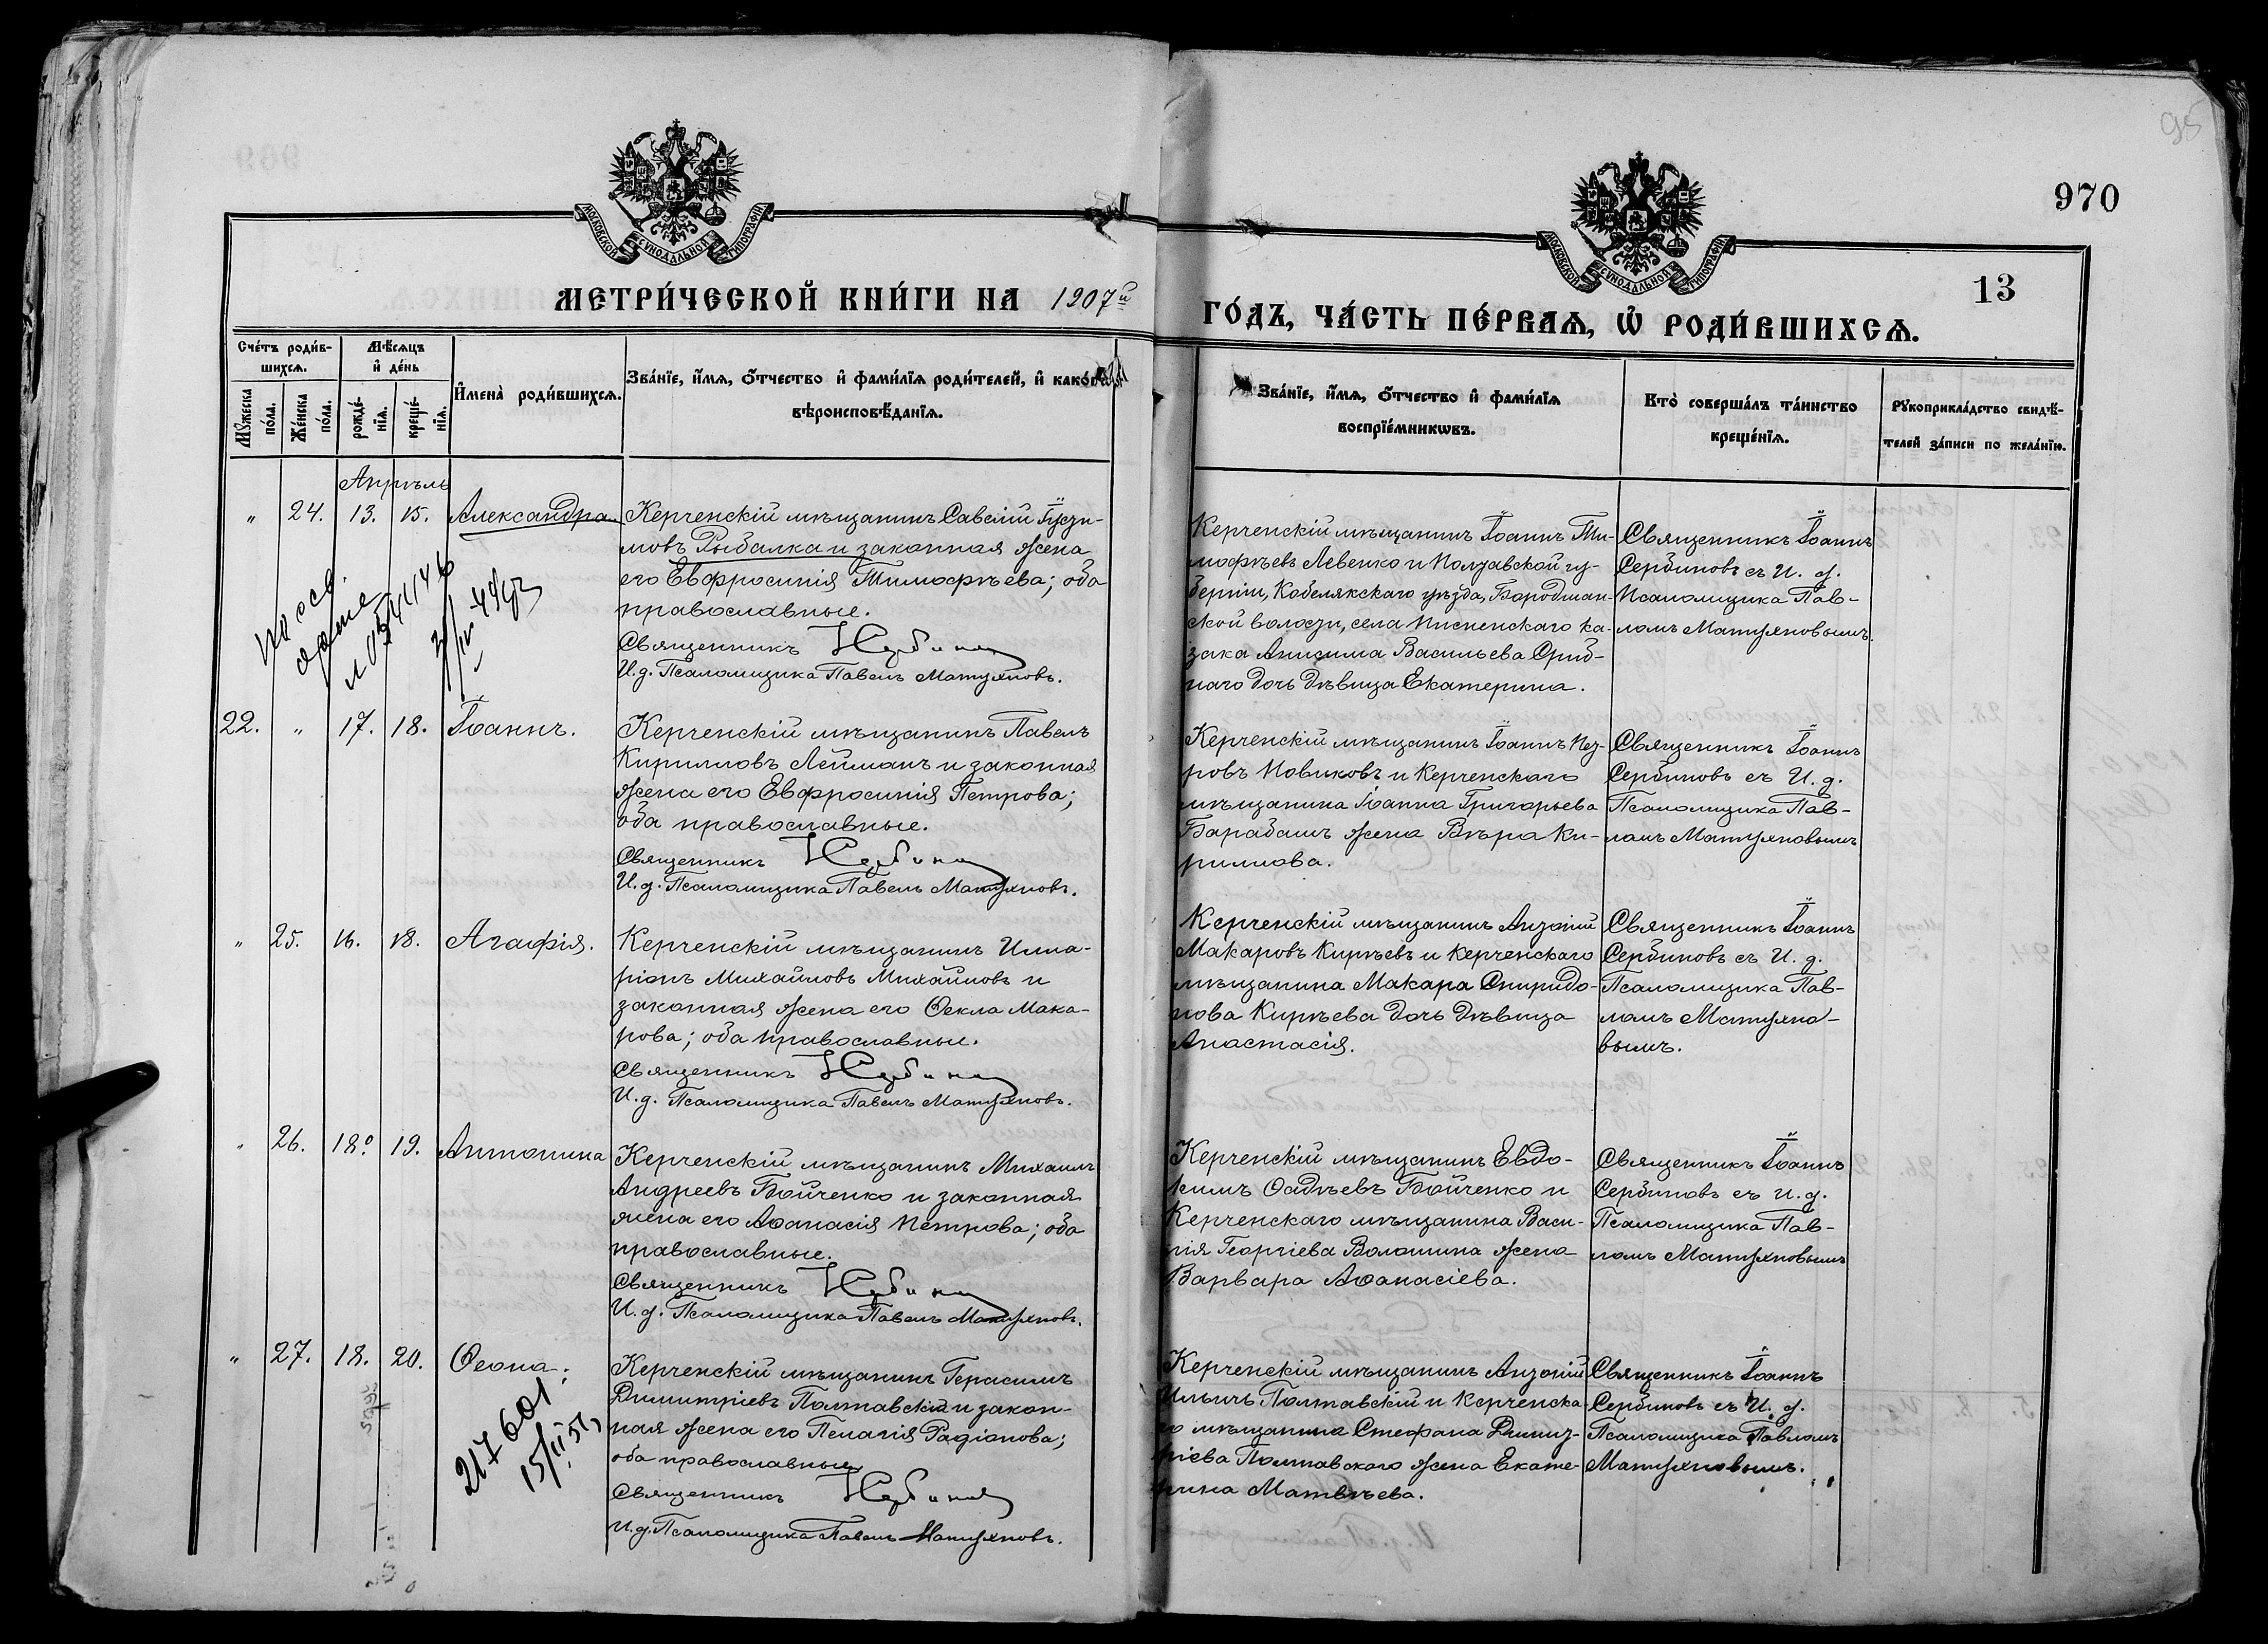 95
970
13
МОСКОВСКОЙ СУНОДАЛЬНОЙ ТИПОГРАФІИ
МОСКОВСКОЙ СУНОДАЛЬНОЙ ТИПОГРАФІИ
МЕТРИ́ЧЕСКОЙ КНИ́ГИ НА 1907й
ГО́ДЪ, ЧА́СТЬ ПЕ́РВАѦ, Ѡ҆ РОДИ́ВШИХСѦ.
Сче́тъ роди́в-
шихсѧ.
Мꙋ́жеска по́ла.
Же́нска по́ла.
Мѣ́сѧцъ
и҆ де́нь
рожде́-
нїѧ.
креще́-
нїѧ.
И҆мена̀ роди́вшихсѧ.
Зва́нїе, и҆́мѧ, ѻ҆́тчество и҆ фами́лїѧ роди́телей, и҆ како́гѡ
вѣроисповѣ́данїѧ.
Зва́нїе, и҆́мѧ, ѻ҆́тчество и҆ фами́лїѧ
воспрїе́мникѡвъ.
Кто̀ соверша́лъ та́инство
креще́нїѧ.
Рꙋкоприкла́дство свидѣ́-
телей за́писи по жела́нїю.
Апрѣль
" 24. 13. 15. Александра.
Керченскій мѣщанинъ Савелій
мовъ Рыбалка и законная жена
его Евфросинія Тимофѣева; оба
православные.
Священникъ
И.д. Псаломщика Павелъ Матужновъ.
Керченскій мѣщанинъ Іоаннъ Ти-
мофѣевъ Левенко и Полтавской гу-
берніи, Кобелякскаго уѣзда,
ской волости, села ка-
зака Анисима Васильева Сриб-
наго дочь дѣвица Екатерина.
Священникъ Іоаннъ
Сербиновъ съ И. д.
Псаломщика Пав-
ломъ Матужновымъ.
22. " 17. 18. Іоаннъ.
Керченскій мѣщанинъ Павелъ
Кирилловъ Лейманъ и законная
жена его Евфросинія Петрова;
оба православные.
Священникъ
И.д. Псаломщика Павелъ Матужновъ.
Керченскій мѣщанинъ Іоаннъ Пет-
ровъ Новиковъ и Керченскаго
мѣщанина Іоанна Григорьева
Барабашъ жена Вѣра Ки-
риллова.
Священникъ Іоаннъ
Сербиновъ съ И. д.
Псаломщика Пав-
ломъ Матужновымъ
" 25. 16. 18. Агафія.
Керченскій мѣщанинъ Илла-
ріонъ Михайловъ Михайловъ и
законная жена его Ѳекла Мака-
рова; оба православные.
Священникъ
И.д. Псаломщика Павелъ Матужновъ.
Керченскій мѣщанинъ Антоній
Макаровъ Кирѣевъ и Керченскаго
мѣщанина Макара Спиридо-
нова Кирѣева дочь дѣвица
Анастасія.
Священникъ Іоаннъ
Сербиновъ съ И. д.
Псаломщика Пав-
ломъ Матужно-
вымъ.
" 26. 18. 19. Антонина
Керченскій мѣщанинъ Михаилъ
Андреевъ Бойченко и законная
жена его Аѳанасія Петрова; оба
православные.
Священникъ
И.д. Псаломщика Павелъ Матужновъ.
Керченскій мѣщанинъ Евдо-
кимъ Ѳадѣевъ Бойченко и
Керченскаго мѣщанина Васи-
лія Георгіева Волошина жена
Варвара Аѳанасіева.
Священникъ Іоаннъ
Сербиновъ съ И. д.
Псаломщика Пав-
ломъ Матужновымъ
" 27. 18. 20. Ѳеона.
217601
Керченскій мѣщанинъ Герасимъ
Димитріевъ Полтавскій и закон-
ная жена его Пелагія Радіонова;
оба православные
Священникъ
И.д. Псаломщика Павелъ Матужновъ.
Керченскій мѣщанинъ Антоній
Ильичъ Полтавскій и Керченска-
го мѣщанина Стефана Димит-
ріева Полтавскаго жена Екате-
рина Матвѣева.
Священникъ Іоаннъ
Сербиновъ съ И. д.
Псаломщика Павломъ
Матужновымъ.